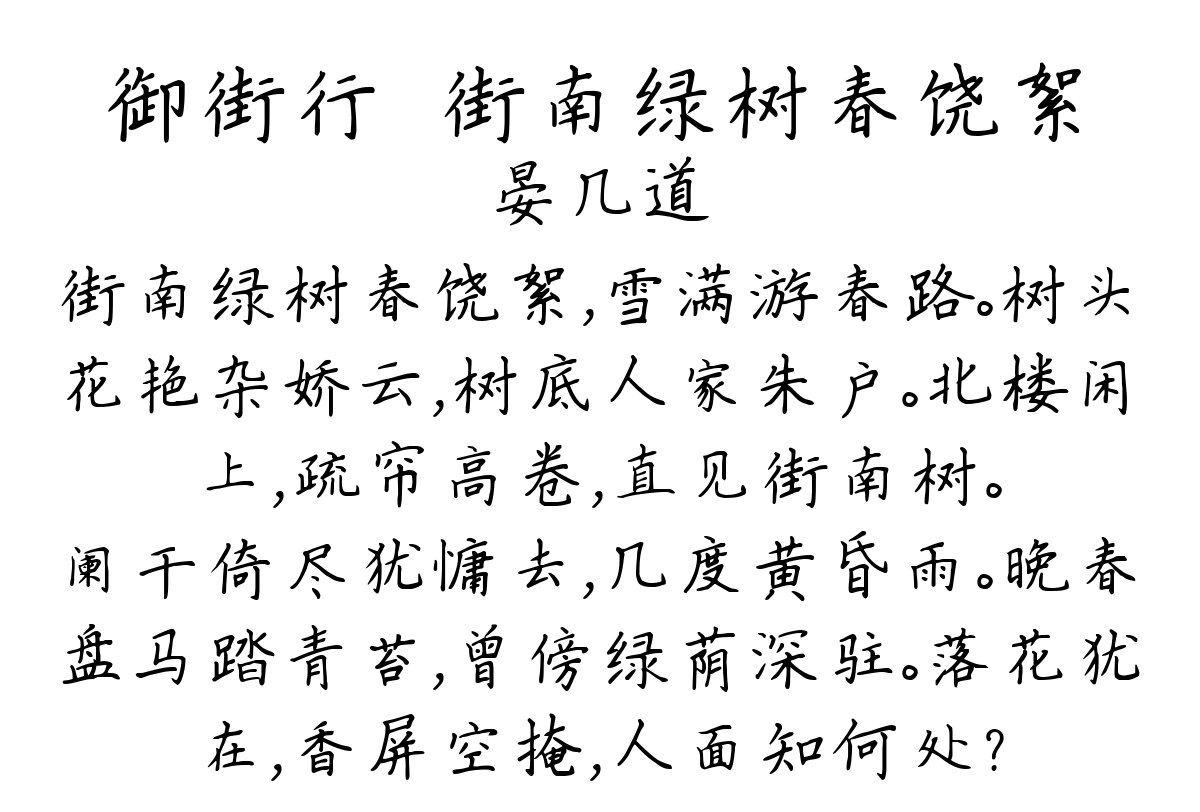 御街行 街南绿树春饶絮
晏几道
街南绿树春饶絮,雪满游春路。树头
花艳杂娇云,树底人家朱户。北楼闲
上,疏帘高卷,直见街南树。
阑干倚尽犹慵去,几度黄昏雨。晚春
盘马踏青苔,曾傍绿荫深驻。落花犹
在,香屏空掩,人面知何处?